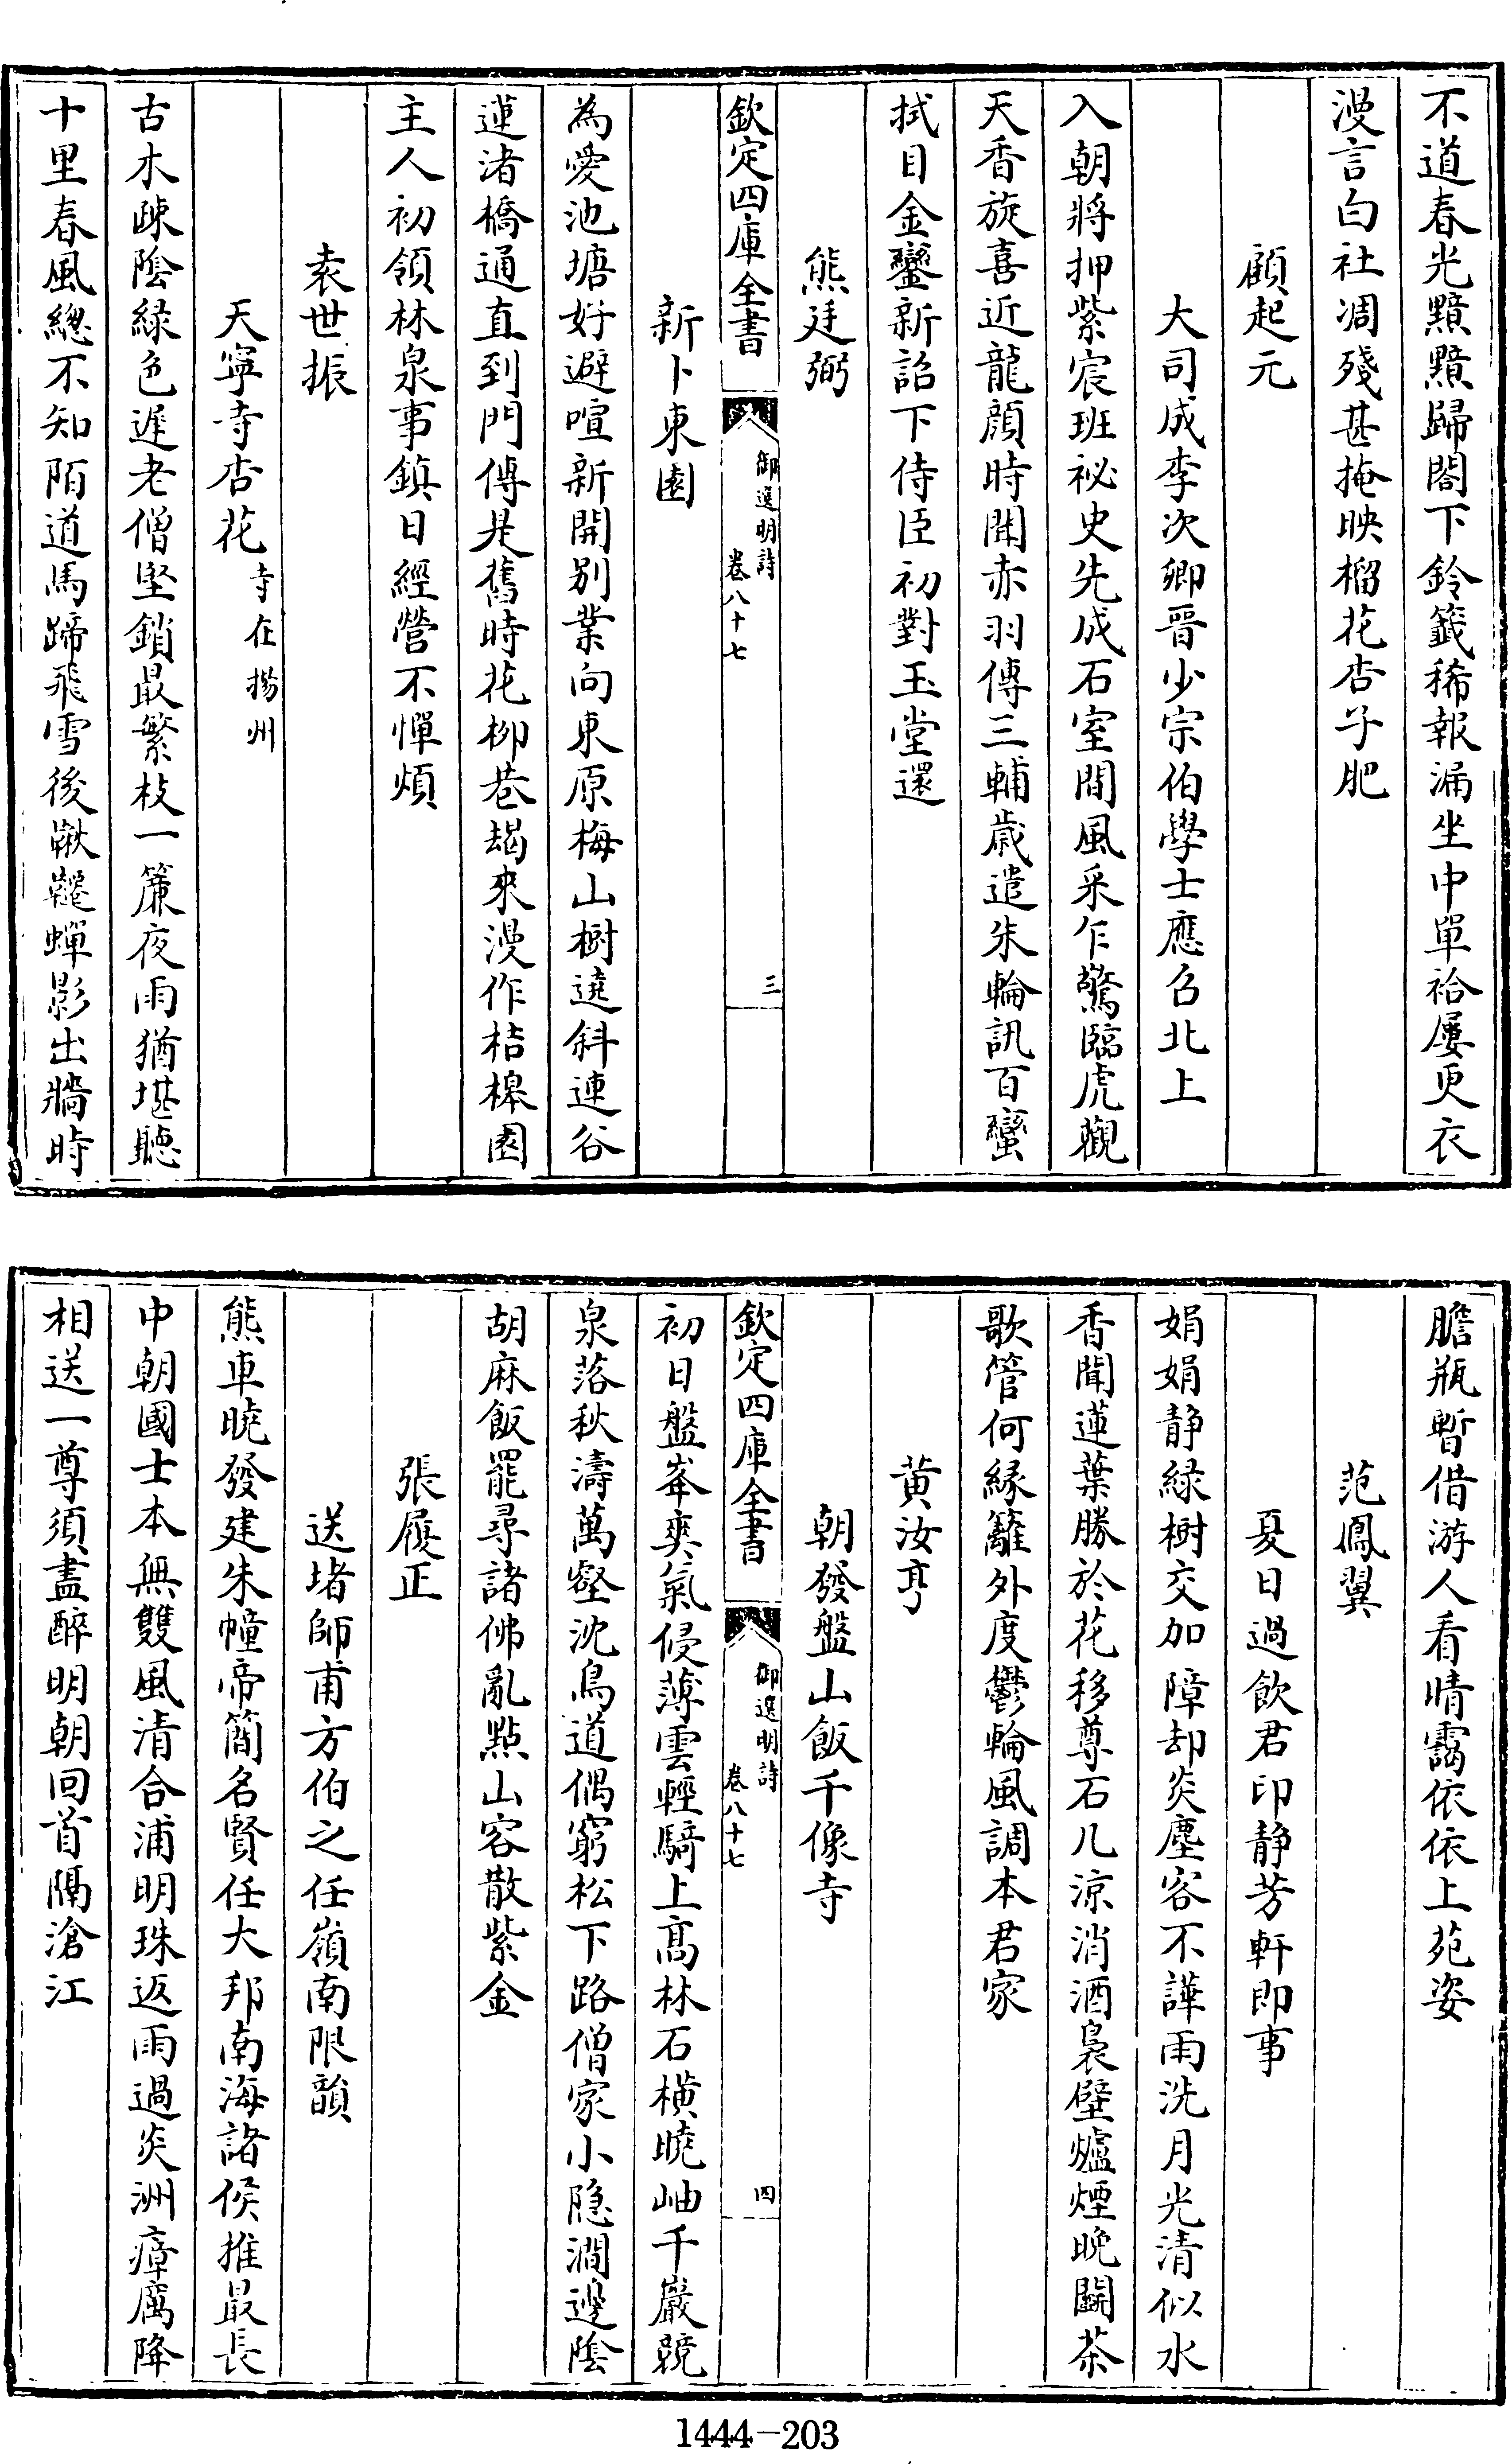 不道春光黯黯歸閤下鈴籤稀報漏坐中單袷屢更衣
漫言白社凋殘甚掩映榴花杏子肥
顧起元
大司成李次卿晋少宗伯學士應召北上
入朝將押紫宸班祕史先成石室間風采乍驚臨虎觀
天香旋喜近龍顔時聞赤羽傳三輔歳遣朱輪訊百蠻
拭目金鑾新詔下侍臣初對玉堂還
熊廷弼
新卜東園
為愛池塘好避喧新開别業向東原梅山樹遶斜連谷
蓮渚橋通直到門傅是舊時花柳巷朅來漫作桔橰園
主人初領林泉事鎮日經營不憚煩
袁世振
天寧寺杏花寺在揚州
古木疎陰緑色遲老僧堅鎖最繁枝一簾夜雨猶堪聽
十里春風總不知陌道馬蹄飛雪後鞦韆蟬影出牆時
欽定四庫全書
御選明詩
卷八十七
三
膽瓶暫借游人看晴靄依依上苑姿
范鳳翼
夏日過飲君印静芳軒即事
娟娟静緑樹交加障却炎塵客不譁雨洗月光清似水
香聞蓮葉勝於花移尊石几涼消酒裊壁爐煙晚鬭茶
歌管何縁籬外度鬱輪風調本君家
黄汝亨
朝發盤山飯千像寺
初日盤峯爽氣侵薄雲輕騎上髙林石横曉岫千巖競
泉落秋濤萬壑沈鳥道偶窮松下路僧家小隐澗邊陰
胡麻飯罷尋諸佛亂點山容散紫金
張履正
送堵師甫方伯之任嶺南限韻
熊車曉發建朱幢帝簡名賢任大邦南海諸侯推最長
中朝國士本無雙風清合浦明珠返雨過炎洲瘴厲降
相送一尊須盡醉明朝回首隔滄江
欽定四庫全書
御選明詩
卷八十七
四
1444-203